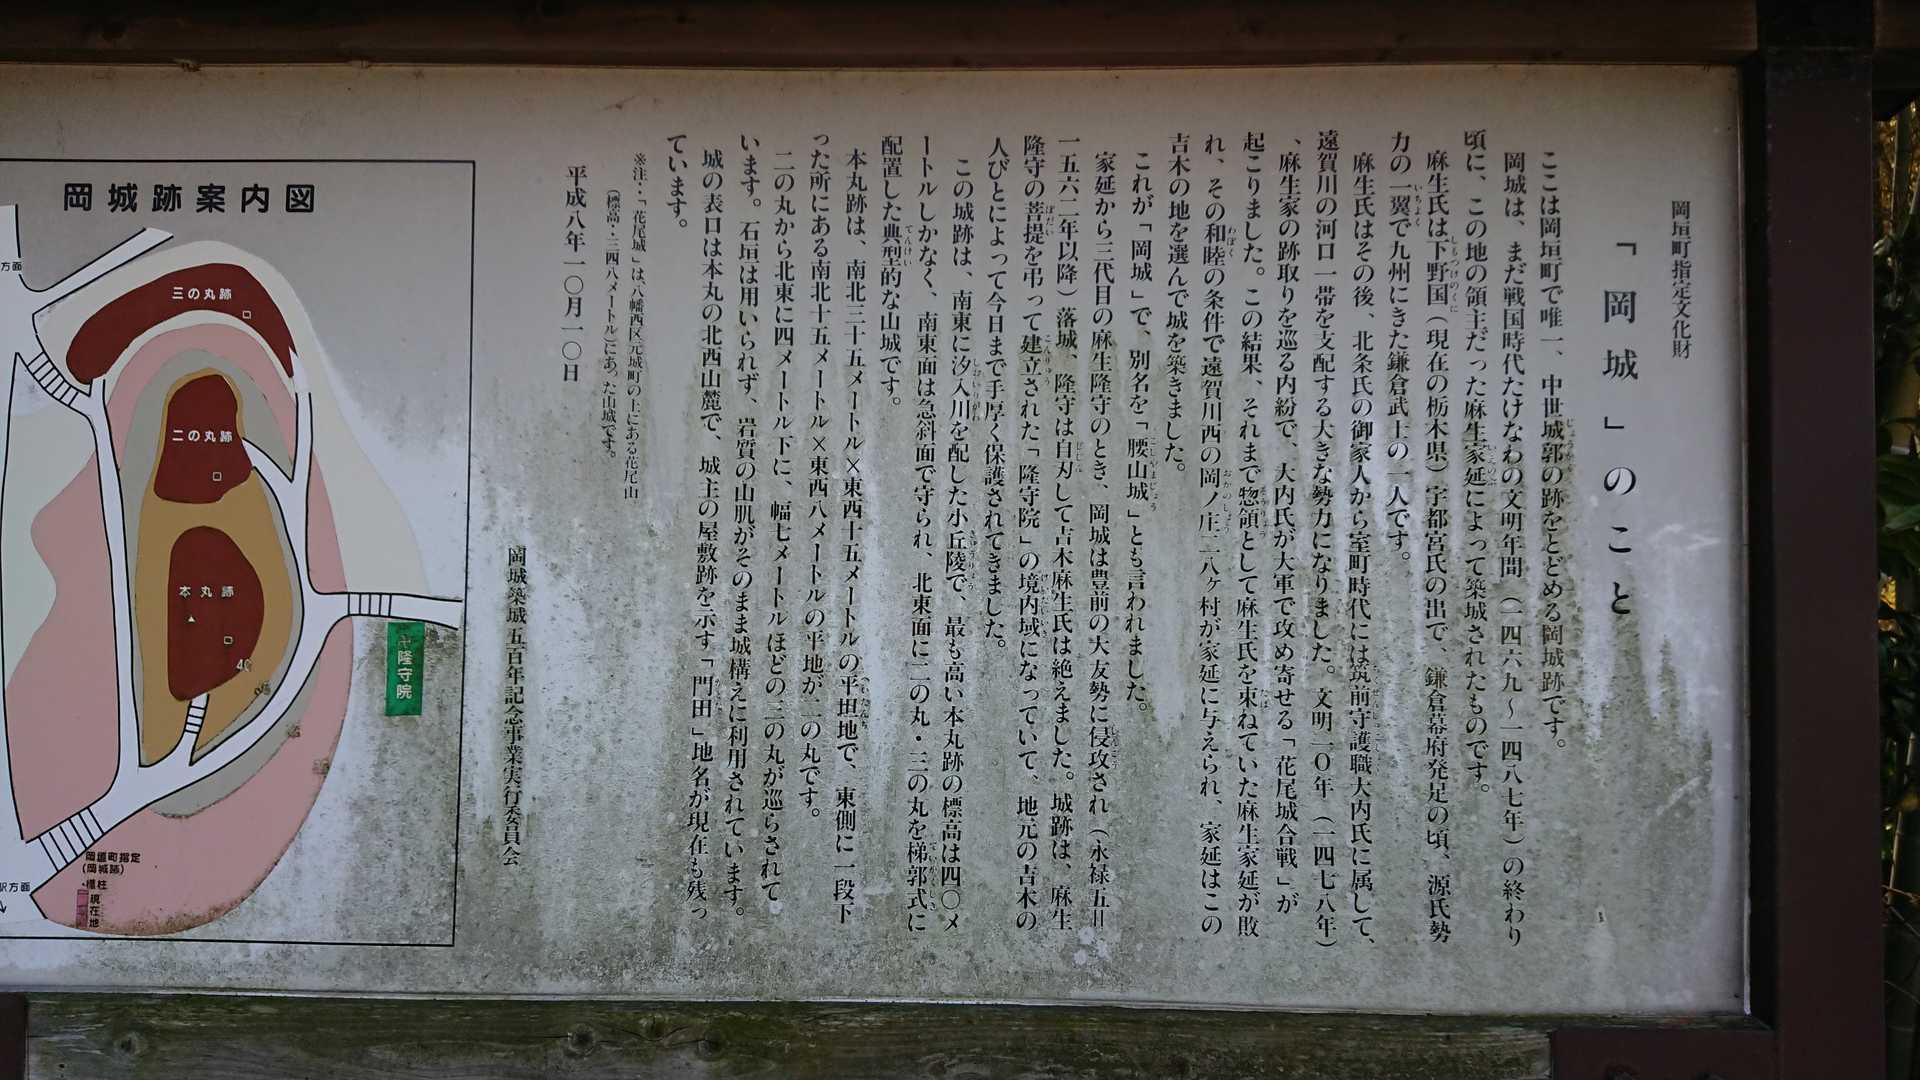 岡垣町指定文化財
「岡城」のこと
ここは岡垣町で唯一、中世城郭の跡をとどめる岡城跡です。
岡城は、まだ戦国時代たけなわの文明年間（一四六九～一四八七年）の終わり
頃に、この地の領主だった麻生家延によって築城されたものです。
麻生氏は下野国（現在の栃木県）宇都宮氏の出で、鎌倉幕府発足の頃、源氏勢
力の一翼で九州にきた鎌倉武士の一人です。
麻生氏はその後、北条氏の御家人から室町時代には筑前守護職大内氏に属して、
遠賀川の河口一帯を支配する大きな勢力になりました。文明一〇年（一四七八年）
、麻生家の跡取りを巡る内紛で、大内氏が大軍で攻め寄せる「花尾城合戦」が
起こりました。この結果、それまで惣領として麻生氏を束ねていた麻生家延が敗
れ、その和睦の条件で遠賀川西の岡ノ庄二八ヶ村が家延に与えられ、家延はこの
吉木の地を選んで城を築きました。
これが「岡城」で、別名を「腰山城」とも言われました。
家延から三代目の麻生隆守のとき、岡城は豊前の大友勢に侵攻され（永禄五＝
一五六二年以降）落城、隆守は自刃して吉木麻生氏は絶えました。城跡は、麻生
隆守の菩提を弔って建立された「隆守院」の境内域になっていて、地元の吉木の
人びとによって今日まで手厚く保護されてきました。
この城跡は、南東に汐入川を配した小丘陵で、最も高い本丸跡の標高は四〇メ
ートルしかなく、南東面は急斜面で守られ、北東面に二の丸・三の丸を梯郭式に
配置した典型的な山城です。
本丸跡は、南北三十五メートル×東西十五メートルの平坦地で、東側に一段下
った所にある南北十五メートル×東西八メートルの平地が二の丸です。
二の丸から北東に四メートル下に、幅七メートルほどの三の丸が巡らされて
います。石垣は用いられず、岩質の山肌がそのまま城構えに利用されています。
城の表口は本丸の北西山麓で、城主の屋敷跡を示す「門田」地名が現在も残っ
ています。
※注・「花尾城」は、八幡西区元城町の上にある花尾山
（標高・三四八メートル）にあった山城です。
平成八年一〇月一〇日
岡城築城五百年記念事業実行委員会
岡城跡案内図
方面
三の丸跡
二の丸跡
本丸跡
40
隆守院
岡垣町指定
(岡城跡)
標柱
現在地
駅方面